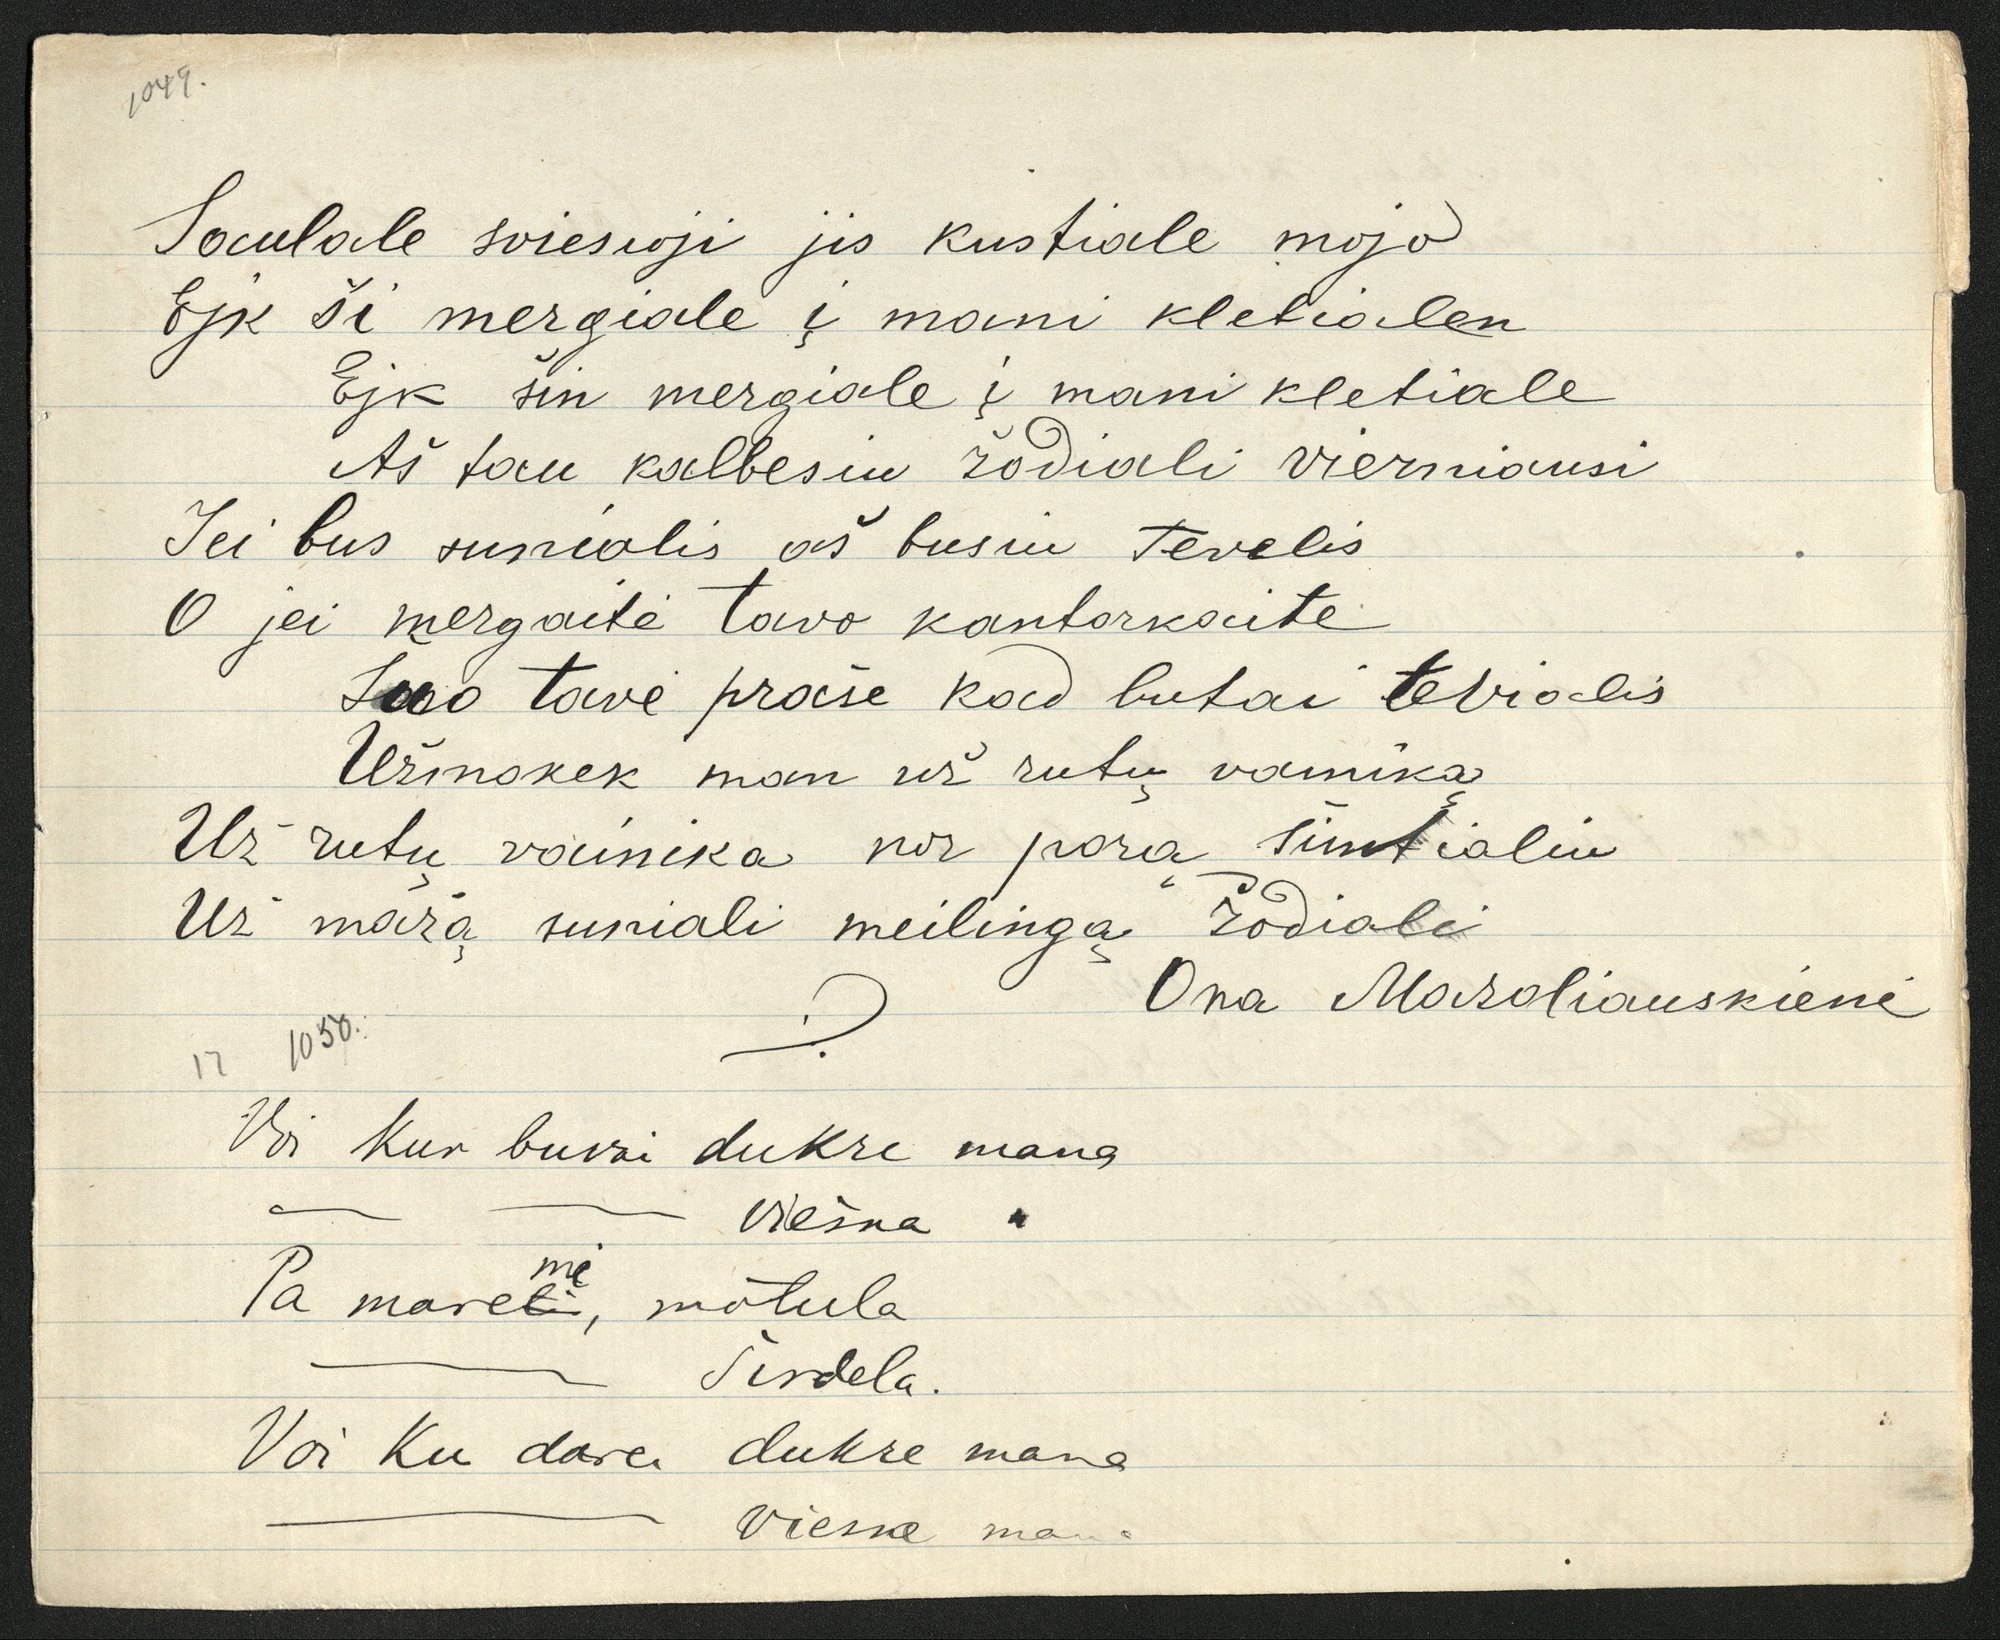 1049.
Saulale sviesioji jis kustiale mojo
Ejk ši mergiale į mani kletialen
Ejk šin mergiale į mani kletiale
Aš tau kalbesiu žodiali vierniausi
Jei bus sunialis aš busiu tevelis
O jei mergaitė tavo kantorkaite
tavė prašė kad butai tėvialis
Užmokek man už rutų vainiką
Už rutų vainika nor porą šimtialiu
Už mažą suniali meilingą žodiali
Ona Mazoliauskienė
17 1050.
Voi kur buvai dukre mana
— — viešna "
Pa mareme, motula
— širdela.
Voi Ku darei dukre mana
— viesne mana